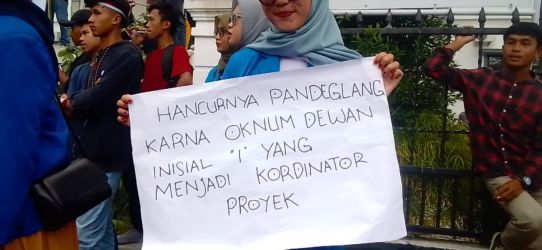 HANCURNYA PANDEGLANG
KARNA OKNUM DEWAN
INISIAL "I" YANG
MENJADI KORDINATOR
PROYEK